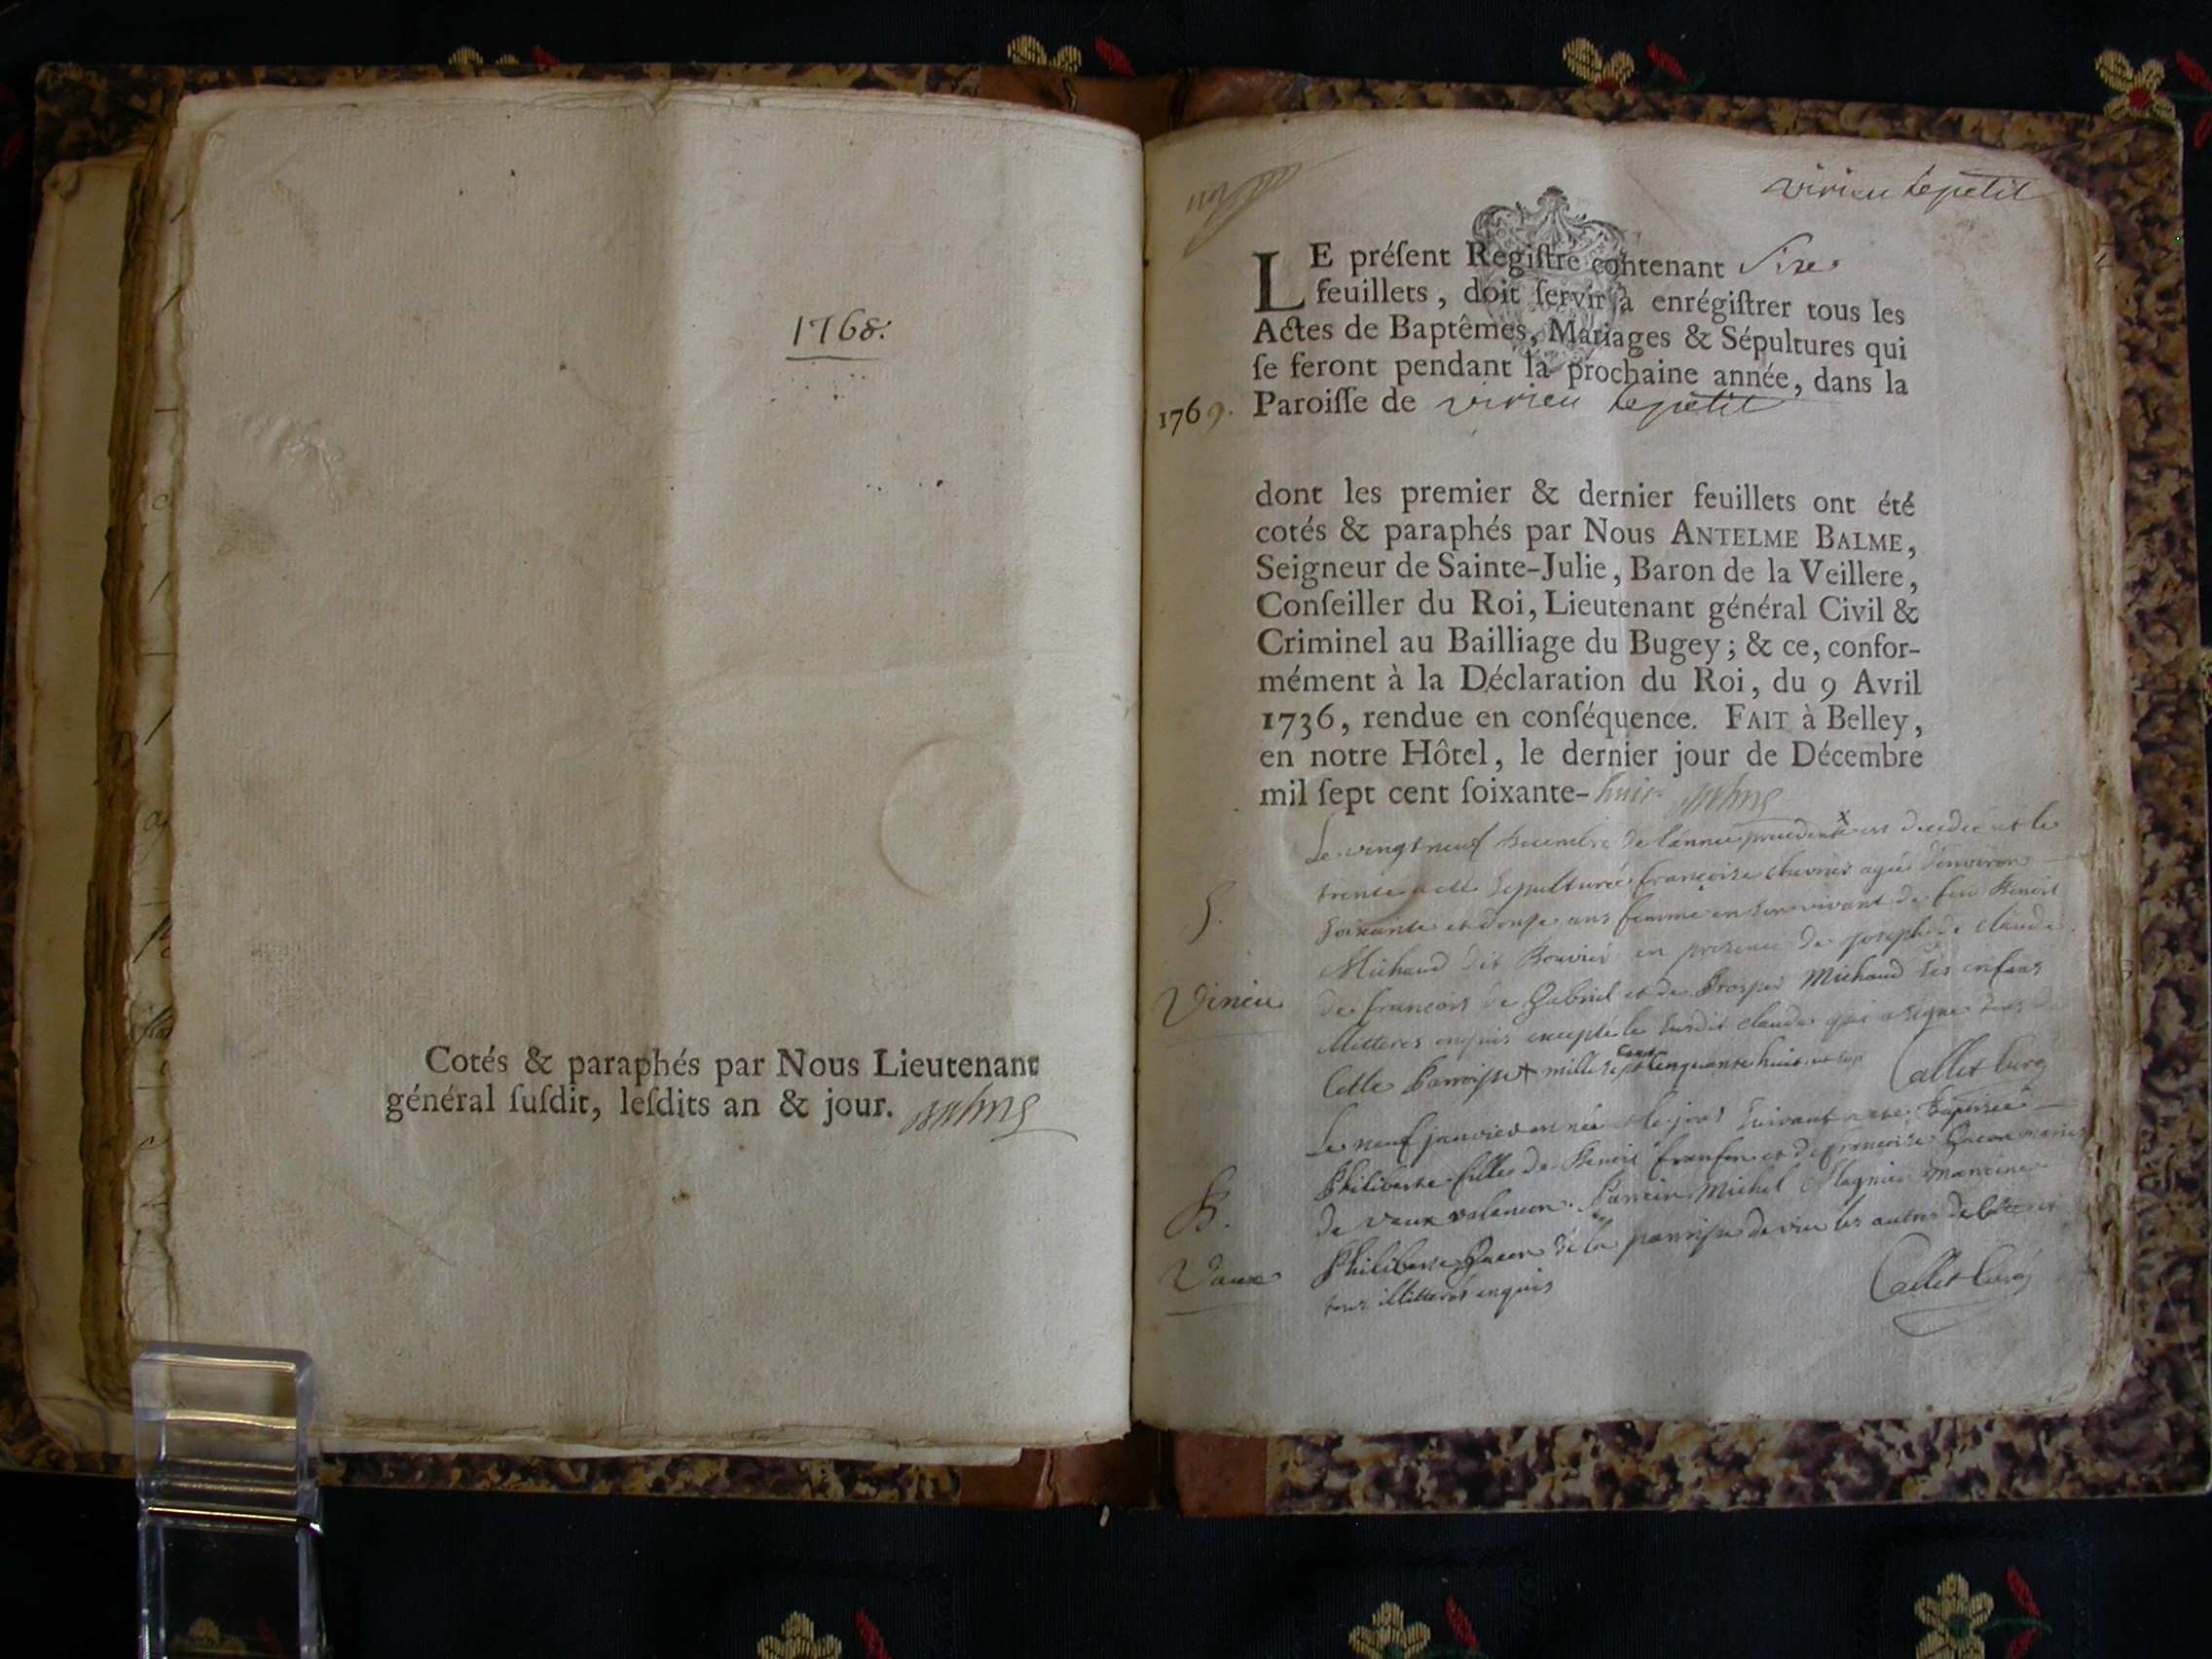 1768.
Cotés & paraphés par Nous Lieutenant
général ſuſdit, leſdits an & jour.
virieu le petit
LE préſent Regiſtre contenant Sixe
feuillets, doit ſervir à enrégiſtrer tous les
Actes de Baptêmes, Mariages & Sépultures qui
ſe feront pendant la prochaine année, dans la
1769. Paroiſſe de virieu le petit
dont les premier & dernier feuillets ont été
cotés & paraphés par Nous ANTELME BALME,
Seigneur de Sainte-Julie, Baron de la Veillere,
Conſeiller du Roi, Lieutenant général Civil &
Criminel au Bailliage du Bugey; & ce, confor-
mément à la Déclaration du Roi, du 9 Avril
1736, rendue en conſéquence. FAIT à Belley,
en notre Hôtel, le dernier jour de Décembre
mil ſept cent ſoixante-huit Balme
Le vingt neuf decembre de l'annee precedente x est decedee et le
trente a eté sepulturée francoise agée d'environ
S. soixante et douse ans femme en son vivant de feu Benoit
Michaud dit Bouvier en presence de joseph de claude
Virieu de francois de Gabriel et de Prosper Michaud ses enfans
illitteres enquis excepté le susdit claude qui a signe tous de
cette Parroisse + mille sept cent cinquante huit Callet curé
Le neuf janvier est née et le jour suivant a ete baptisée
Philiberte fille de Benoit et de francoise mariés
B. de vaux Parrein Michel Magnin marreine
Vaux Philiberte de la parroisse de vieu les autres de
tous illitterés enquis Callet Curé